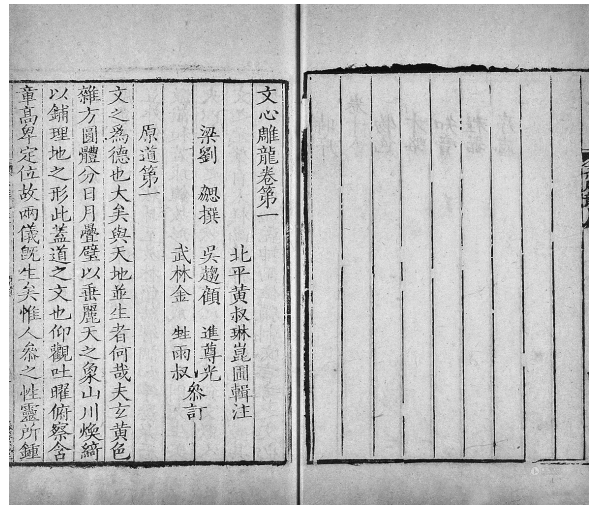 文心雕龍卷第一
北平黃叔琳崑圃輯注
梁劉 勰撰 吳趨顧 進尊光
武林金 甡雨叔
叅訂
原道第一
文之爲德也大矣與天地並生者何哉夫玄黃色
雜方圓體分日月疊璧以垂麗天之象山川煥綺
以鋪理地之形此蓋道之文也仰觀吐曜俯察含
章高卑定位故兩儀既生矣惟人叅之性靈所鍾